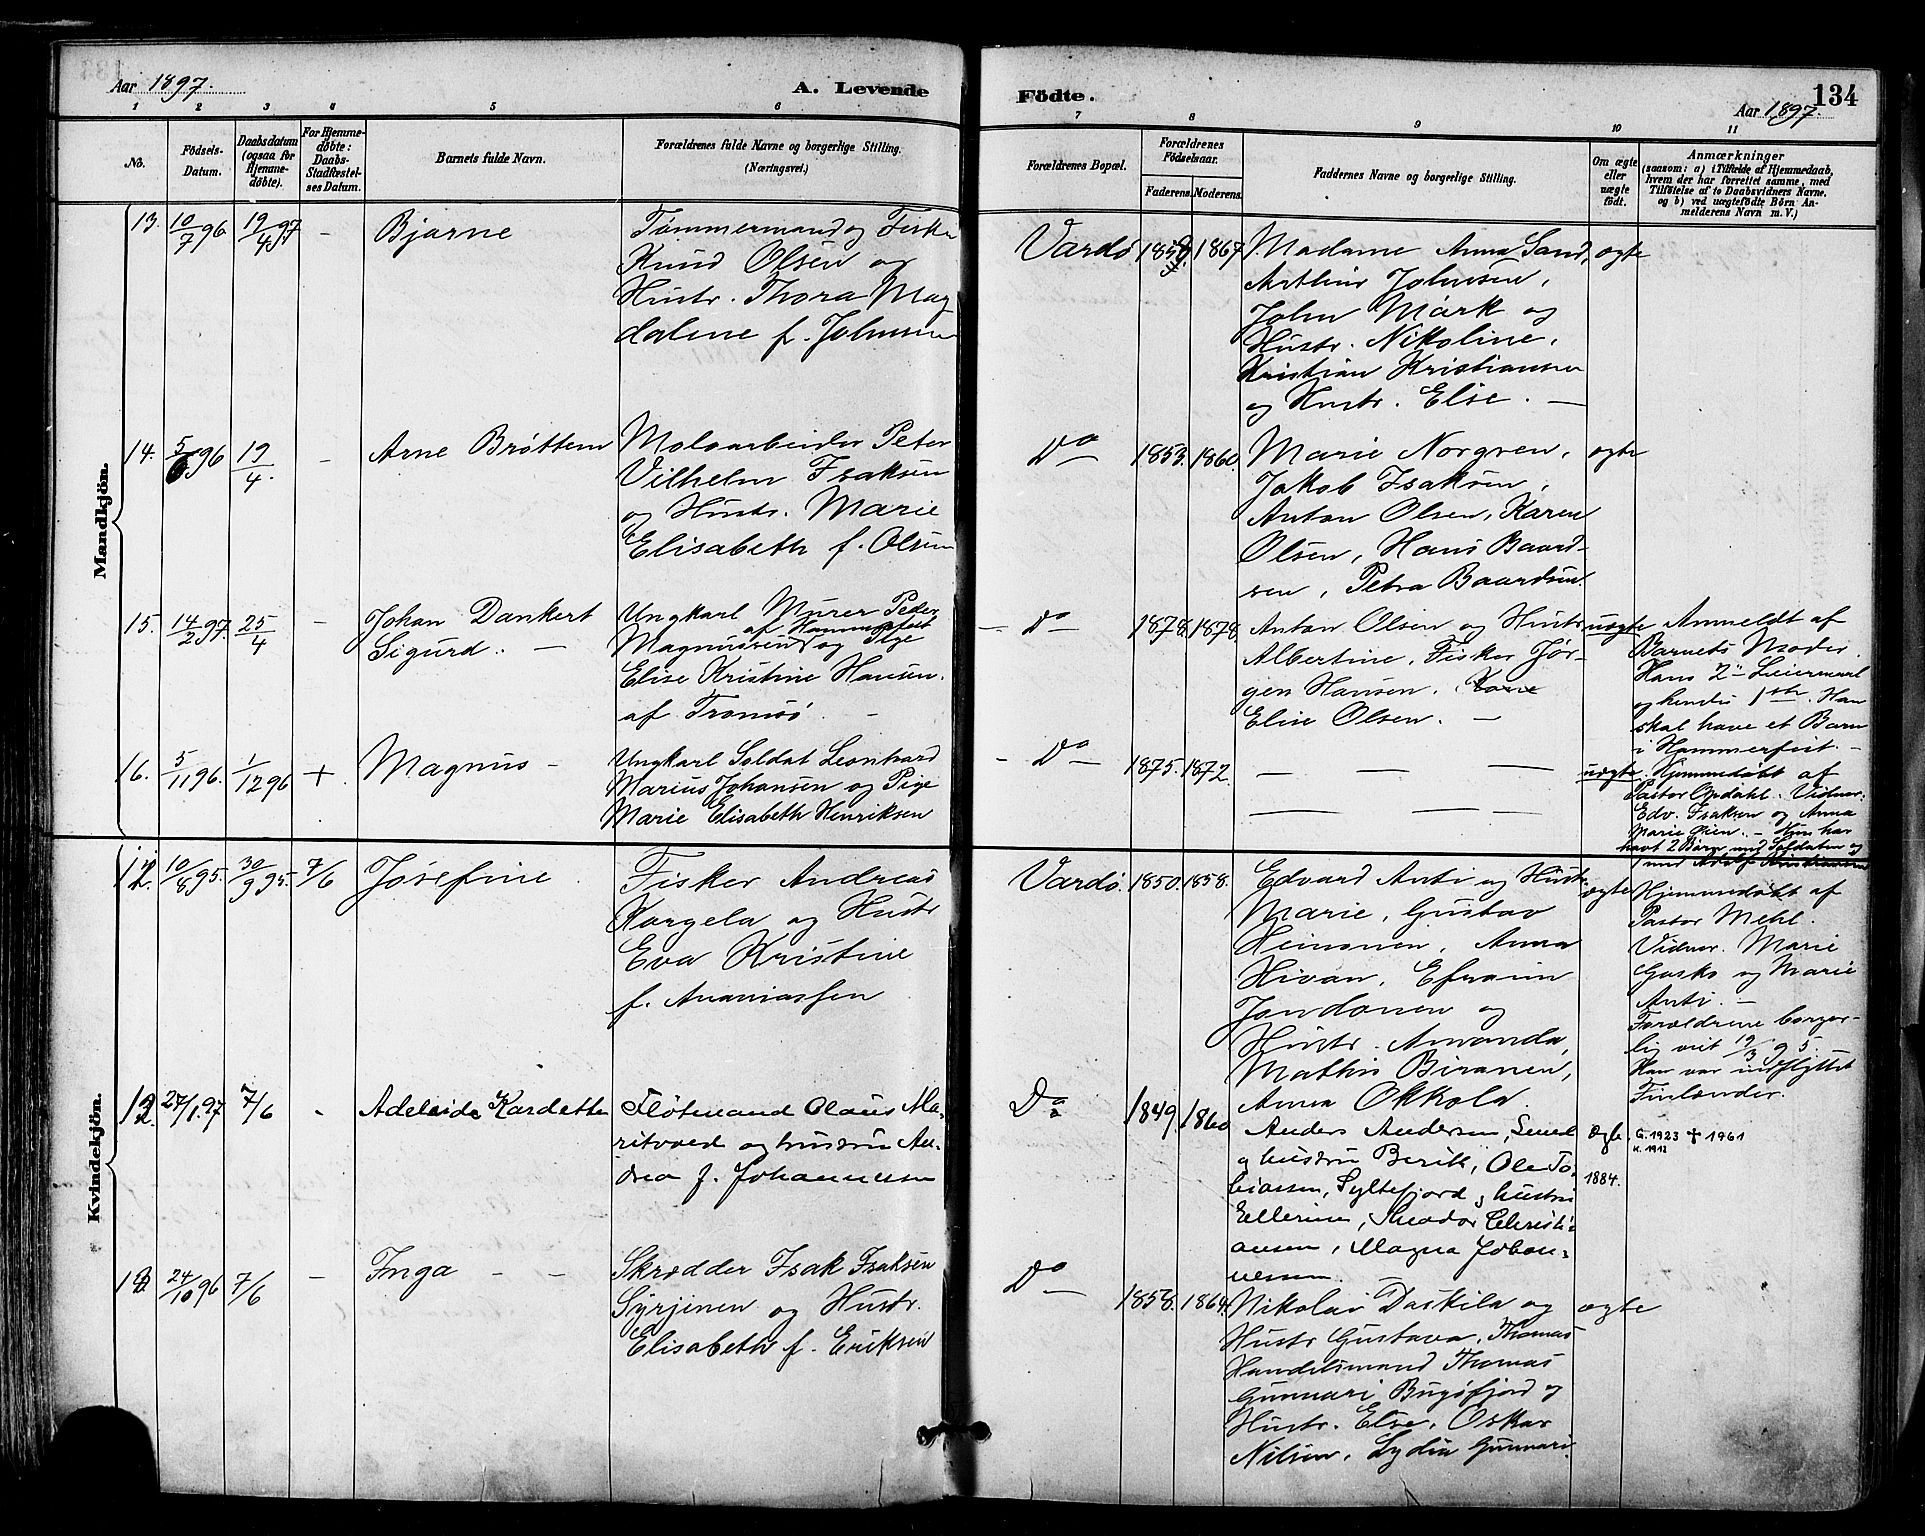 Aar 1897.
A. Levende
Födte.
134
Aar 1897.
1 2 3 4 5 6 7 8 9 10 11
No.
Födsels-
Datum.
Daabsdatum
(ogsaa for
Hjemme-
døbte).
For Hjemme-
døbte:
Daabs-
Stadfæstel-
ses Datum.
Barnets fulde Navn.
Forældrenes fulde Navne og borgerlige Stilling.
(Næringsvei.)
Forældrenes Bopæl.
Forældrenes
Födselsaar.
Faderens. Moderens.
Faddernes Navne og borgerlige Stilling.
Om ægte
eller
uægte
født.
Anmærkninger
(saasom: a) i Tilfælde af Hjemmedaab,
hvem der har forrettet samme, med
Tilføielse af to Daabsvidners Navne.
og b) ved uægtefødte Børn An-
melderens Navn m. V.)
Mandkjön.
13. 10/7 96 19/4 97 - Bjarne
Tømmermand og Fisker
Knud Olsen og
Hustr. Thora Mag
dalene f. Johnsen
Vardø 1867.
Madame Anna Sand,
Arthur Johnsen,
John Mark og
Hustr. Nikoline,
Kristian Kristiansen
og Hustr. Else. —
ægte
14. 5/6 96 19/4. - Arne Brøttem
Moloarbeider Peter
Vilhelm Isaksen
og Hustr. Marie
Elisabeth f. Olsen
Do 1853. 1860.
Marie Norgren,
Jakob Isaksen,
Anton Olsen, Karen
Olsen, Hans Baard-
sen, Petra Baardsen
ægte
15. 14/2 97. 25/4 - Johan Dankert
Sigurd. —
Ungkarl Murer Peder
af Hammerfest
Magnussen og Pige
Elise Kristine Hansen.
af Tromsø. -
- Do 1878. 1878.
Anton Olsen og Hustr
Albertine, Fisker Jør-
gen Hansen,
Elise Olsen. —
uægte
Anmeldt af
Barnets Moder.
Hans 2det Leiermaal
og hendes 1ste. Han
skal have et Barn
i Hammerfest. -
16. 5/11 96. 1/12 96 + Magnus -
Ungkarl Soldat Leonhard
Marius Johansen og Pige
Marie Elisabeth Henriksen
- Do 1875. 1872.
— — —
— — —
uægte.
Hjemmedøbt af
Pastor Opdahl. Vidner:
Edv. Isaksen og Anna
Marie Øien. - Hun har
havt 2 Børn med Soldaten og
1 med Adolf Kristiansen
Kvindekjön.
10/8 95. 30/9 95. 7/6 Josefine.
Fisker Andreas
Kargela og Hustr
Eva Kristine
f. Ananiassen
Vardø. 1850. 1858.
Edvard Anti og Hustr.
Marie, Gustav
Heinonen, Anna
Hivan, Efraim
Jondonen og
Hustr. Amanda,
Mathis Biranen,
Anna Okkola.
ægte
Hjemmedøbt af
Pastor Mehl.
Vidner. Marie
Gasko og Marie
Anti. -
Forældrene borger-
lig viet 19/3 95.
Han var indflyttet
Finlænder.
27/1.97 7/6 - Adelaide Kardette
Fløtmand Olaus Ma-
ritvoed og hustru An-
drea f. Johannesen
Do 1849. 1860
Anders Andersen,
og hustru Berit, Ole To-
biassen, Syltefjord og hustru
Ellerine, Theodor Christi-
ansen, Magna Johan-
nessen.
ægte,
1884.
G. 1923 + 1961
K. 1912
24/10 96 7/6 - Inga - -
Skrædder Isak Isaksen
Syrjinen og Hustr.
Elisabeth f. Eriksen
Do 1858. 1864.
Nikolai Daskila og
Hustr Gustava, Thomas
Handelsmand Thomas
Gunnari Bugøfjord og
Hustr. Else, Oskar
Nilsen, Lydia Gunnari.
ægte